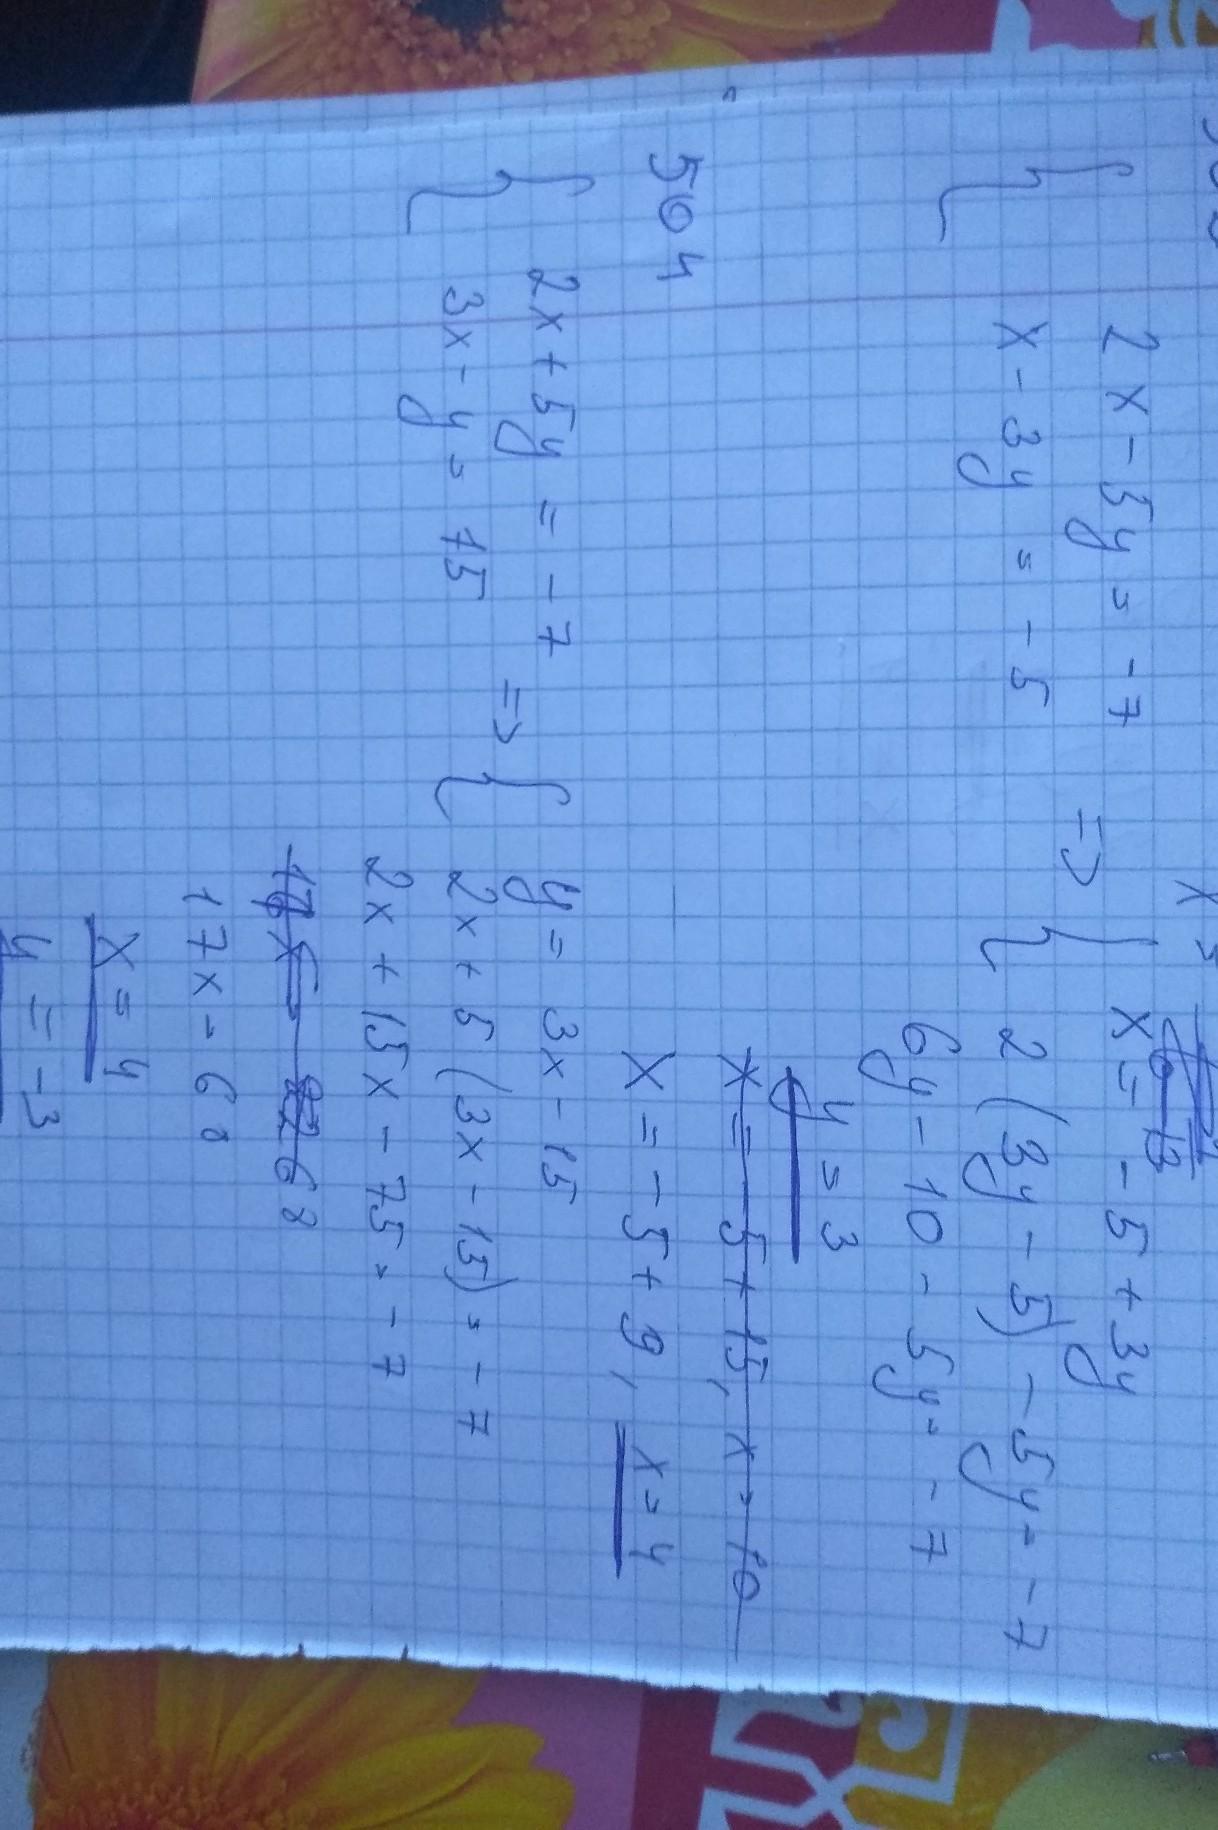 2x - 5y = -7
x - 3y = -5
=>
x = -5 + 3y
2(3y - 5) - 5y = -7
6y - 10 - 5y = -7
y = 3
x = -5 + 15, x = 10
x = -5 + 9, x = 4
504
2x + 5y = -7
3x - y = 15
=>
y = 3x - 15
2x + 5(3x - 15) = -7
2x + 15x - 75 = -7
68
17x = 68
x = 4
y = -3